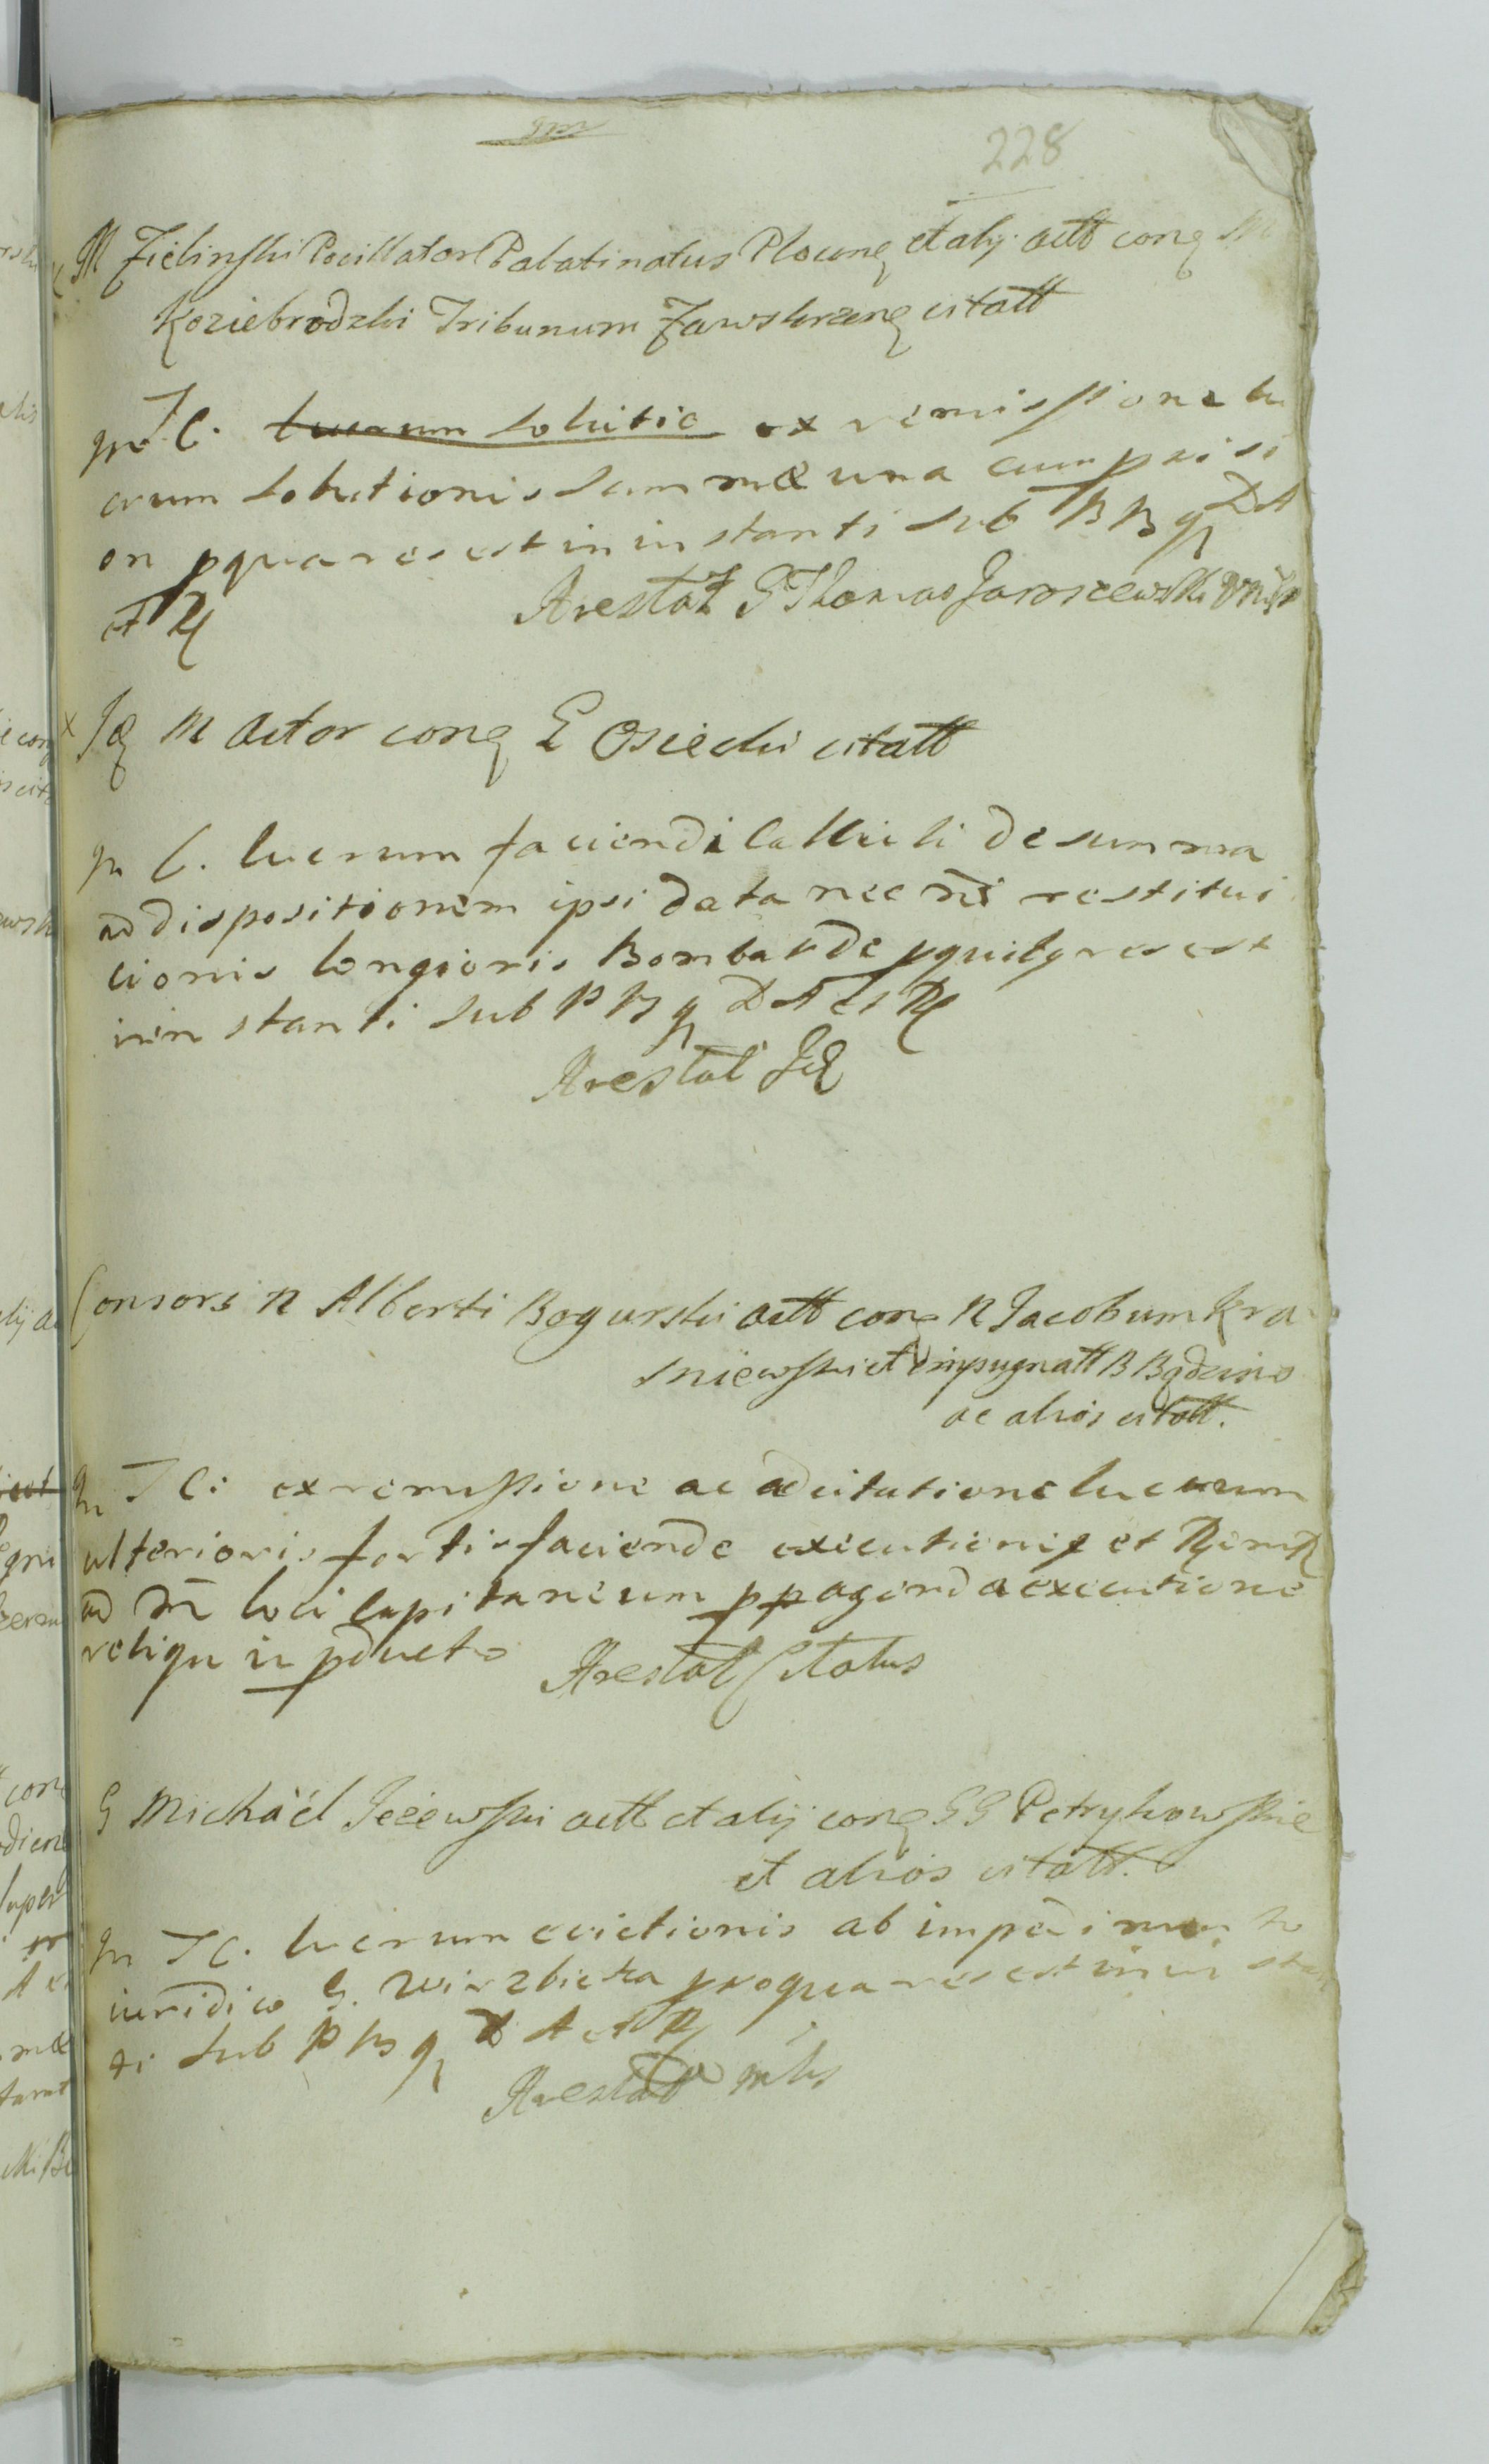 228
M Zielinski Pocillator Palatinatus Plocens et alij actt cong M
Koziebrodzki Tribunum Zawskrzens citatt
in T C. lucrum solutio ex remissione lu
crum solutionis summæ una cum poisi
on pqua res est in instanti sub P B q D A
et R
Arestat G Thomas Jaroszewski
Id M Actor cong G Osiecki citatt
in C. lucrum faciendi Calkuli de summa
ad dispositionem ipsi data nec nō restitui
cionis longioris Bombarde pquibq res est
inin stanti sub P B q D A et R
Arestat Id
Consors N Alberti Bogurski actt cong N Jacobum Kra
sniewski et impugnatt B
ac alios citatt.
in T C: ex remissione ac adcitatione lucrum
ulterioris fortis faciende executionis et Rem
ad M loci Capitaneum pp agenda executione
reliqu in pducto
Arestat Citatus
G Michaël Jeżewski actt et alij cong GG Petrykowskie
et alios citatt.
in T C. lucrum evictionis ab impedimen to
iuridico G. Wierzbicka pro qua res est in in stan
ti sub P B q D A et R
Arestat